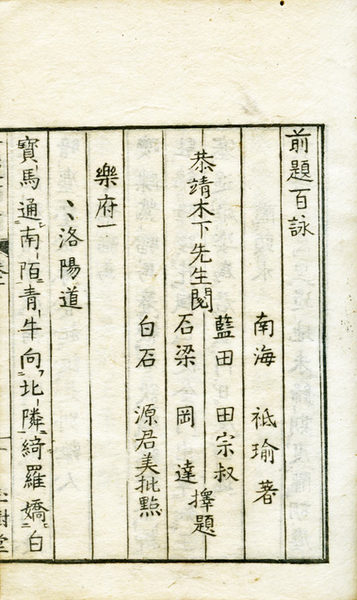 前題百詠
南海 祗瑜著
恭靖木下先生閱
藍田 田宗叔
石梁 岡達 擇題
白石 源君美批點
樂府一
洛陽道
寶馬通南陌青牛向北隣綺羅嬌白